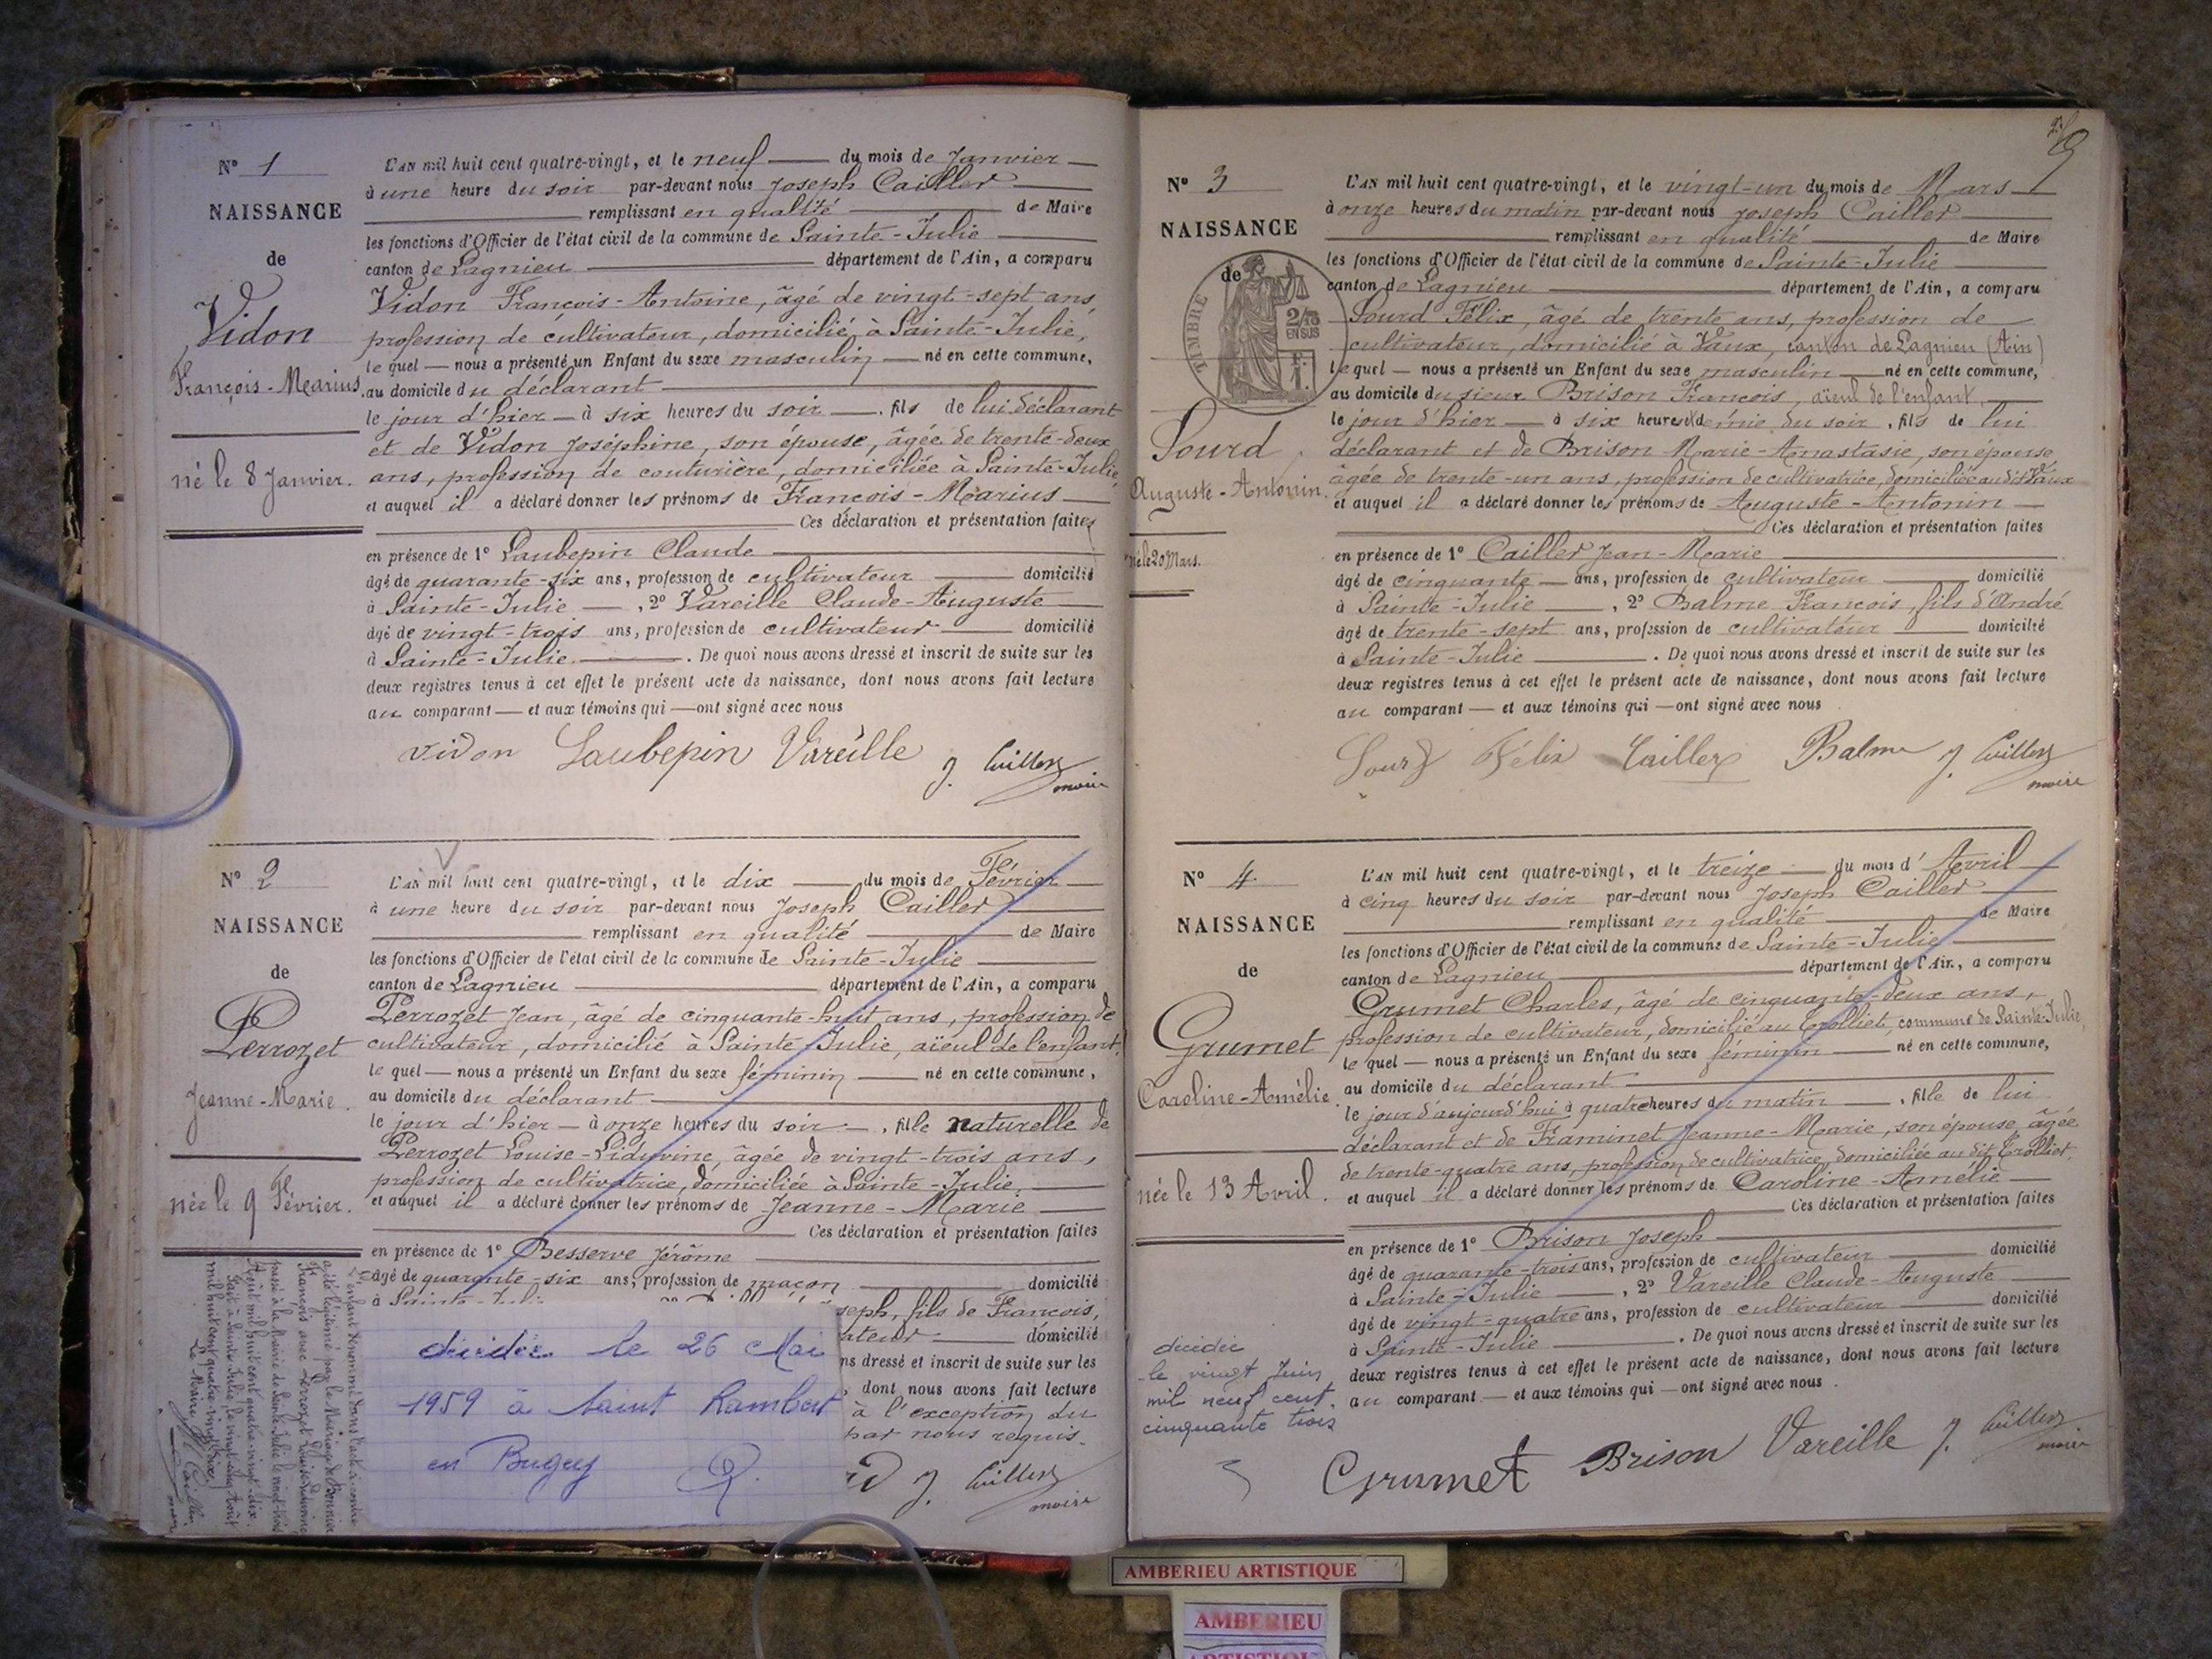 N° 1
NAISSANCE
de
Vidon
François-Marius.
né le 8 Janvier.
L'AN mil huit cent quatre-vingt, et le neuf du mois de Janvier
à une heure du soir par-devant nous Joseph Cailler
remplissant en qualité de Maire
les fonctions d'Officier de l'état civil de la commune de Sainte-Julie
canton de Lagnieu département de l'Ain, a comparu
Vidon François-Antoine, âgé de vingt-sept ans,
profession de cultivateur, domicilié à Sainte-Julie,
lequel nous a présenté un Enfant du sexe masculin né en cette commune,
au domicile du déclarant
le jour d'hier à six heures du soir, fils de lui déclarant
et de Vidon Joséphine, son épouse, âgée de trente-deux
ans, profession de couturière, domiciliée à Sainte-Julie,
et auquel il a déclaré donner les prénoms de François-Marius
Ces déclaration et présentation faites
en présence de 1° Laubepin Claude
âgé de quarante-six ans, profession de cultivateur domicilié
à Sainte-Julie, 2° Vareille Claude-Auguste
âgé de vingt-trois ans, profession de cultivateur domicilié
à Sainte-Julie. De quoi nous avons dressé et inscrit de suite sur les
deux registres tenus à cet effet le présent acte de naissance, dont nous avons fait lecture
au comparant et aux témoins qui ont signé avec nous
vidon Laubepin Vareille J. Cailler
maire
N° 2
NAISSANCE
de
Perrozet
Jeanne-Marie.
née le 9 Février.
L'AN mil huit cent quatre-vingt, et le dix du mois de Février
à une heure du soir par-devant nous Joseph Cailler
remplissant en qualité de Maire
les fonctions d'Officier de l'état civil de la commune de Sainte-Julie
canton de Lagnieu département de l'Ain, a comparu
Perrozet Jean, âgé de cinquante-huit ans, profession de
cultivateur, domicilié à Sainte-Julie, aïeul de l'enfant,
lequel nous a présenté un Enfant du sexe féminin né en cette commune,
au domicile du déclarant
le jour d'hier à onze heures du soir, fille naturelle de
Perrozet Louise-Liduvine, âgée de vingt-trois ans,
profession de cultivatrice, domiciliée à Sainte-Julie,
et auquel il a déclaré donner les prénoms de Jeanne-Marie
Ces déclaration et présentation faites
en présence de 1° Besserve Jérôme
âgé de quarante-six ans, profession de maçon domicilié
à Sainte-Juli
seph, fils de François,
ateur domicilié
ns dressé et inscrit de suite sur les
dont nous avons fait lecture
à l'exception du
par nous requis.
J. Cailler
maire
décédée le 26 Mai
1959 à Saint Rambert
en Bugey
L'enfant dénommé dans l'acte ci-contre
a été légitimé par le Mariage de Bonnier
François avec Perrozet Louise-Liduvine
passé à la Mairie de Sainte-Julie le vingt-trois
Août mil huit cent quatre-vingt-dix.
Fait à Sainte-Julie, le vingt-cinq Août
mil huit cent quatre-vingt-dix.
Le Maire J. Cailler
maire
N° 3
NAISSANCE
de
TIMBRE
2/10
EN SUS
Sourd
Auguste-Antonin.
né le 20 Mars.
L'AN mil huit cent quatre-vingt, et le vingt-un du mois de Mars
à onze heures du matin par-devant nous Joseph Cailler
remplissant en qualité de Maire
les fonctions d'Officier de l'état civil de la commune de Sainte-Julie
canton de Lagnieu département de l'Ain, a comparu
Sourd Félix, âgé de trente ans, profession de
cultivateur, domicilié à Vaux, canton de Lagnieu (Ain)
lequel nous a présenté un Enfant du sexe masculin né en cette commune,
au domicile du sieur Brison François, aïeul de l'enfant,
le jour d'hier à six heures et demie du soir, fils de lui
déclarant et de Brison Marie-Anastasie, son épouse,
âgée de trente-un ans, profession de cultivatrice, domiciliée au dit Vaux
et auquel il a déclaré donner les prénoms de Auguste-Antonin
Ces déclaration et présentation faites
en présence de 1° Cailler Jean-Marie
âgé de cinquante ans, profession de cultivateur domicilié
à Sainte-Julie, 2° Balme François, fils d'André
âgé de trente-sept ans, profession de cultivateur domicilié
à Sainte-Julie. De quoi nous avons dressé et inscrit de suite sur les
deux registres tenus à cet effet le présent acte de naissance, dont nous avons fait lecture
au comparant et aux témoins qui ont signé avec nous
Sourd Félix Cailler Balme J. Cailler
maire
N° 4
NAISSANCE
de
Grumet
Caroline-Amélie
née le 13 Avril.
L'AN mil huit cent quatre-vingt, et le treize du mois d'Avril
à cinq heures du soir par-devant nous Joseph Cailler
remplissant en qualité de Maire
les fonctions d'Officier de l'état civil de la commune de Sainte-Julie
canton de Lagnieu département de l'Ain, a comparu
Grumet Charles, âgé de cinquante-deux ans,
profession de cultivateur, domicilié au Trolliet, commune de Sainte-Julie,
lequel nous a présenté un Enfant du sexe féminin né en cette commune,
au domicile du déclarant
le jour d'aujourd'hui à quatre heures du matin, fille de lui
déclarant et de Framinet Jeanne-Marie, son épouse, âgée
de trente-quatre ans, profession de cultivatrice, domiciliée au dit Trolliet,
et auquel il a déclaré donner les prénoms de Caroline-Amélie
Ces déclaration et présentation faites
en présence de 1° Brison Joseph
âgé de quarante-trois ans, profession de cultivateur domicilié
à Sainte-Julie, 2° Vareille Claude-Auguste
âgé de vingt-quatre ans, profession de cultivateur domicilié
à Sainte-Julie. De quoi nous avons dressé et inscrit de suite sur les
deux registres tenus à cet effet le présent acte de naissance, dont nous avons fait lecture
au comparant et aux témoins qui ont signé avec nous.
Grumet Brison Vareille J. Cailler
maire
décédée
le vingt Juin
mil neuf cent
cinquante trois
AMBERIEU ARTISTIQUE
AMBERIEU
ARTISTIQUE